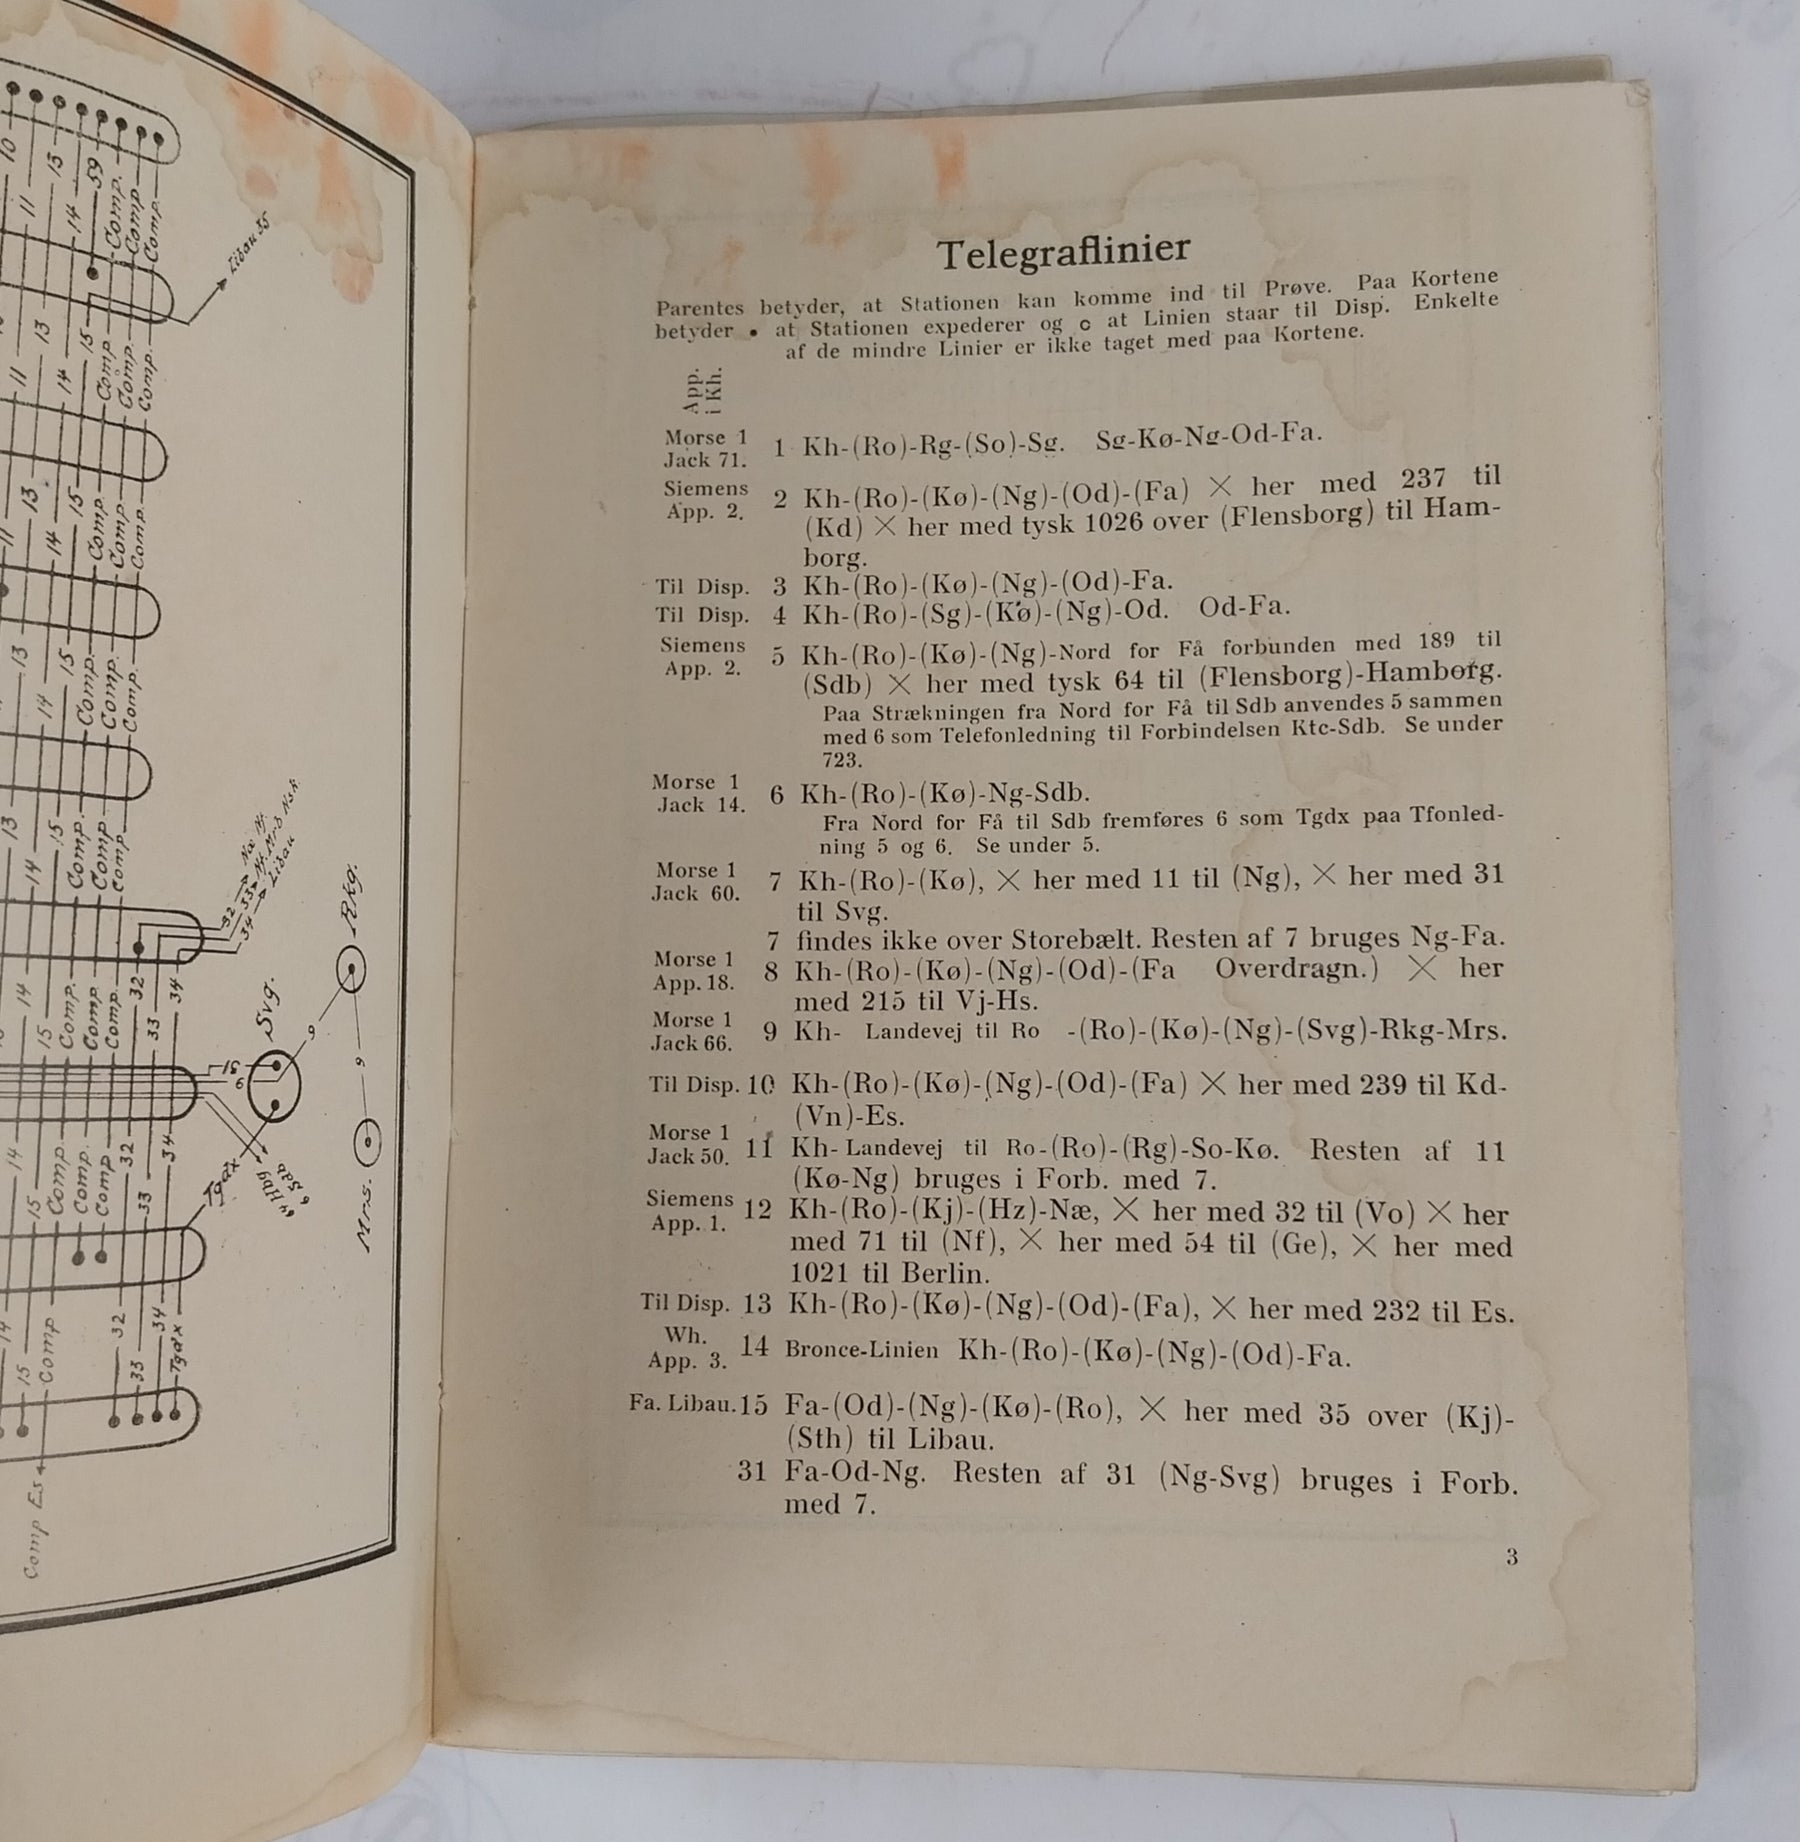 10
11
13
14
59
Comp.
Comp
Comp.
Libau 35
11
13
14
15
Comp
Comp.
Comp.
11
13
14
15
Comp.
Comp.
Comp.
13
14
15
Comp.
Comp.
Comp.
13
14
15
Comp.
Comp
Comp
32
33
34
Libau
Rkg.
14
15
Comp.
Comp.
Comp.
32
33
34
Svg.
15
9
9
9
14
15
Comp.
Comp.
Comp.
32
33
34
Tgdx
64 Hbg
6 Sdb
Mrs.
14
15
Comp
32
33
34
Tgdx
Comp Es
Telegraflinier
Parentes betyder, at Stationen kan komme ind til Prøve. Paa Kortene
betyder • at Stationen expederer og o at Linien staar til Disp. Enkelte
af de mindre Linier er ikke taget med paa Kortene.
App.
i Kh.
Morse 1
Jack 71.
1 Kh-(Ro)-Rg-(So)-Sg. Sg-Kø-Ng-Od-Fa.
Siemens
App. 2.
2 Kh-(Ro)-(Kø)-(Ng)-(Od)-(Fa) × her med 237 til
(Kd) × her med tysk 1026 over (Flensborg) til Ham-
borg.
Til Disp. 3 Kh-(Ro)-(Kø)-(Ng)-(Od)-Fa.
Til Disp. 4 Kh-(Ro)-(Sg)-(Kø)-(Ng)-Od. Od-Fa.
Siemens
App. 2.
5 Kh-(Ro)-(Kø)-(Ng)-Nord for Få forbunden med 189 til
(Sdb) × her med tysk 64 til (Flensborg)-Hamborg.
Paa Strækningen fra Nord for Få til Sdb anvendes 5 sammen
med 6 som Telefonledning til Forbindelsen Ktc-Sdb. Se under
723.
Morse 1
Jack 14.
6 Kh-(Ro)-(Kø)-Ng-Sdb.
Fra Nord for Få til Sdb fremføres 6 som Tgdx paa Tfonled-
ning 5 og 6. Se under 5.
Morse 1
Jack 60.
7 Kh-(Ro)-(Kø), × her med 11 til (Ng), × her med 31
til Svg.
7 findes ikke over Storebælt. Resten af 7 bruges Ng-Fa.
Morse 1
App. 18.
8 Kh-(Ro)-(Kø)-(Ng)-(Od)-(Fa Overdragn.) × her
med 215 til Vj-Hs.
Morse 1
Jack 66.
9 Kh- Landevej til Ro -(Ro)-(Kø)-(Ng)-(Svg)-Rkg-Mrs.
Til Disp. 10 Kh-(Ro)-(Kø)-(Ng)-(Od)-(Fa) × her med 239 til Kd-
(Vn)-Es.
Morse 1
Jack 50.
11 Kh- Landevej til Ro-(Ro)-(Rg)-So-Kø. Resten af 11
(Kø-Ng) bruges i Forb. med 7.
Siemens
App. 1.
12 Kh-(Ro)-(Kj)-(Hz)-Næ, × her med 32 til (Vo) × her
med 71 til (Nf), × her med 54 til (Ge), × her med
1021 til Berlin.
Til Disp. 13 Kh-(Ro)-(Kø)-(Ng)-(Od)-(Fa), × her med 232 til Es.
Wh.
App. 3.
14 Bronce-Linien Kh-(Ro)-(Kø)-(Ng)-(Od)-Fa.
Fa. Libau. 15 Fa-(Od)-(Ng)-(Kø)-(Ro), × her med 35 over (Kj)-
(Sth) til Libau.
31 Fa-Od-Ng. Resten af 31 (Ng-Svg) bruges i Forb.
med 7.
3